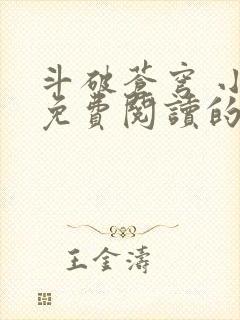 斗破蒼穹 小
免費閱讀的
王金濤